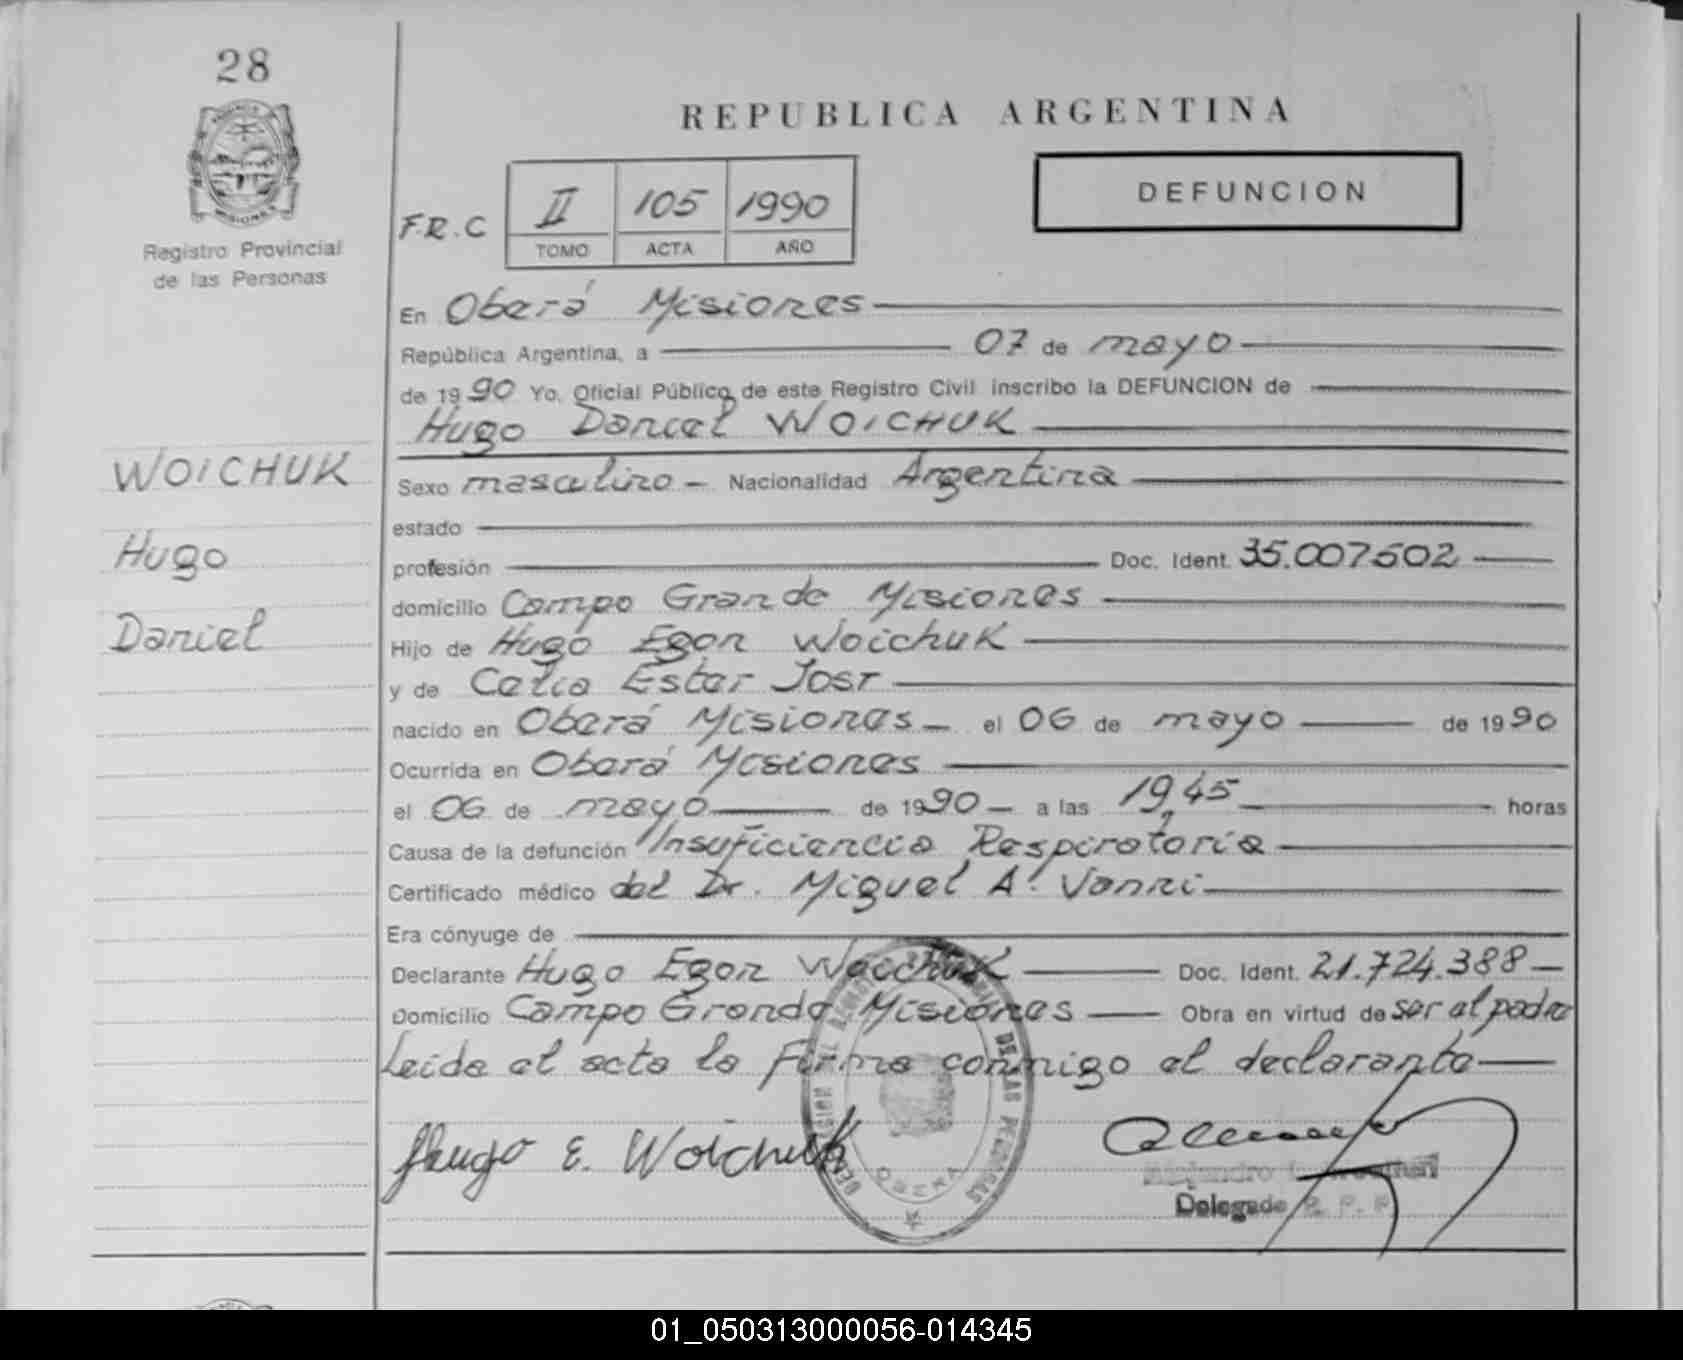 28
MISIONES
Registro Provincial
de las Personas
REPUBLICA ARGENTINA
F.R.C
II 105 1990
TOMO ACTA AÑO
DEFUNCION
En Oberá Misiones
República Argentina, a 07 de mayo
de 1990 Yo, Oficial Público de este Registro Civil inscribo la DEFUNCION de
Hugo Daniel WOICHUK
WOICHUK
Hugo
Daniel
Sexo masculino - Nacionalidad Argentina
estado
profesión Doc. Ident. 35.007502
domicilio Campo Grande Misiones
Hijo de Hugo Egon Woichuk
y de Celia Ester Jost
nacido en Oberá Misiones - el 06 de mayo de 1990
Ocurrida en Oberá Misiones
el 06 de mayo de 1990 - a las 19,45 horas
Causa de la defunción Insuficiencia Respiratoria
Certificado médico del Dr. Miguel A. Vanni
Era cónyuge de
Declarante Hugo Egon Woichuk Doc. Ident. 21.724.388
Domicilio Campo Grande Misiones Obra en virtud de ser el padre
Leida el acta la firma conmigo el declarante
Hugo E. Woichuk
DE LAS PERSONAS
OBERA
Alejandro
Delegado R. P. P.
01_050313000056-014345